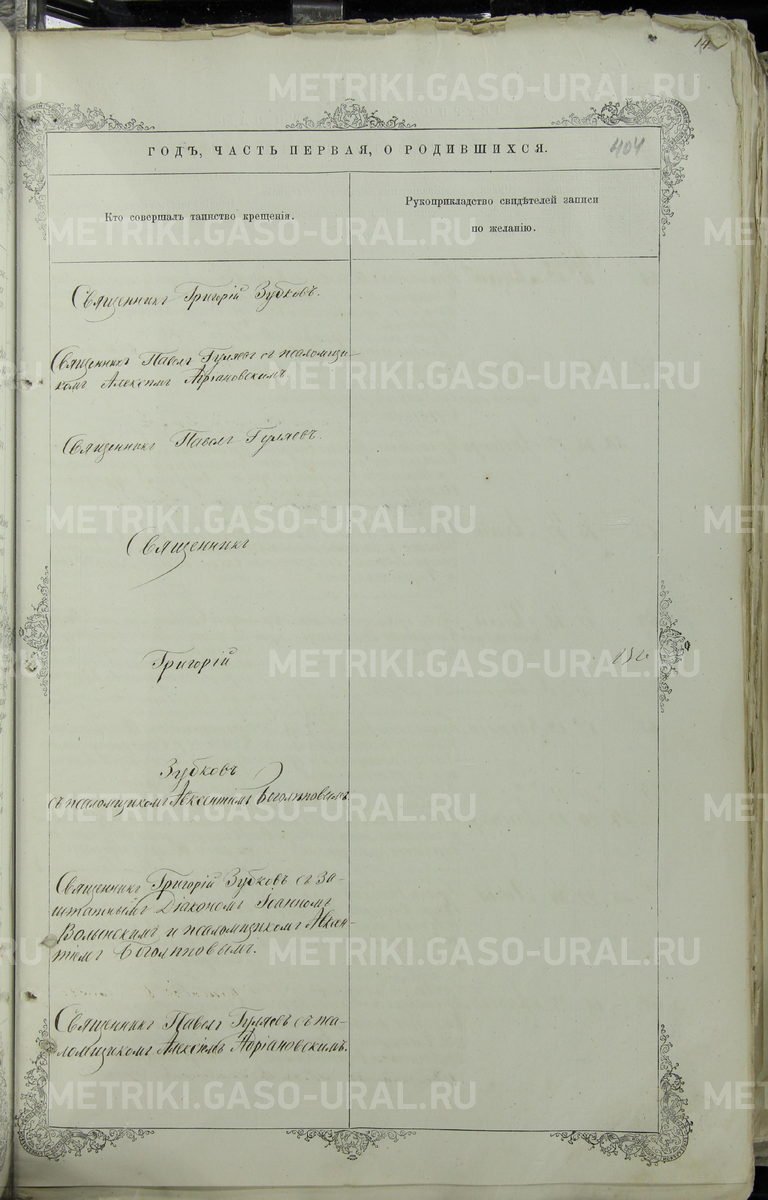 14
ГОДЪ, ЧАСТЬ ПЕРВАЯ, О РОДИВШИХСЯ.
404
Кто совершалъ таинство крещенія.
Рукоприкладство свидѣтелей записи
по желанію.
Священникъ Григорій Зубковъ.
Священникъ Павелъ Гуляевъ съ псаломщи-
комъ Алексіемъ Адріановскимъ
Священникъ Павелъ Гуляевъ.
Священникъ
Григорій
Зубковъ
съ псаломщикомъ Авксентіемъ Боголѣповымъ
Священникъ Григорій Зубковъ съ за-
штатнымъ Діакономъ Іоанномъ
Волынскимъ и псаломщикомъ Авксен-
тіемъ Боголѣповымъ.
Священникъ Павелъ Гуляевъ съ пса-
ломщикомъ Алексіемъ Адріановскимъ.
METRIKI.GASO-URAL.RU